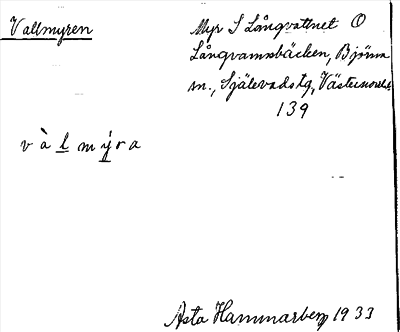 Vallmyren
Myr S Långvattnet O
Långvannsbäcken, Björna
sn., Själevads tg, Västernorrl.
139
v à l m ý r a
Asta Hammarberg 1933